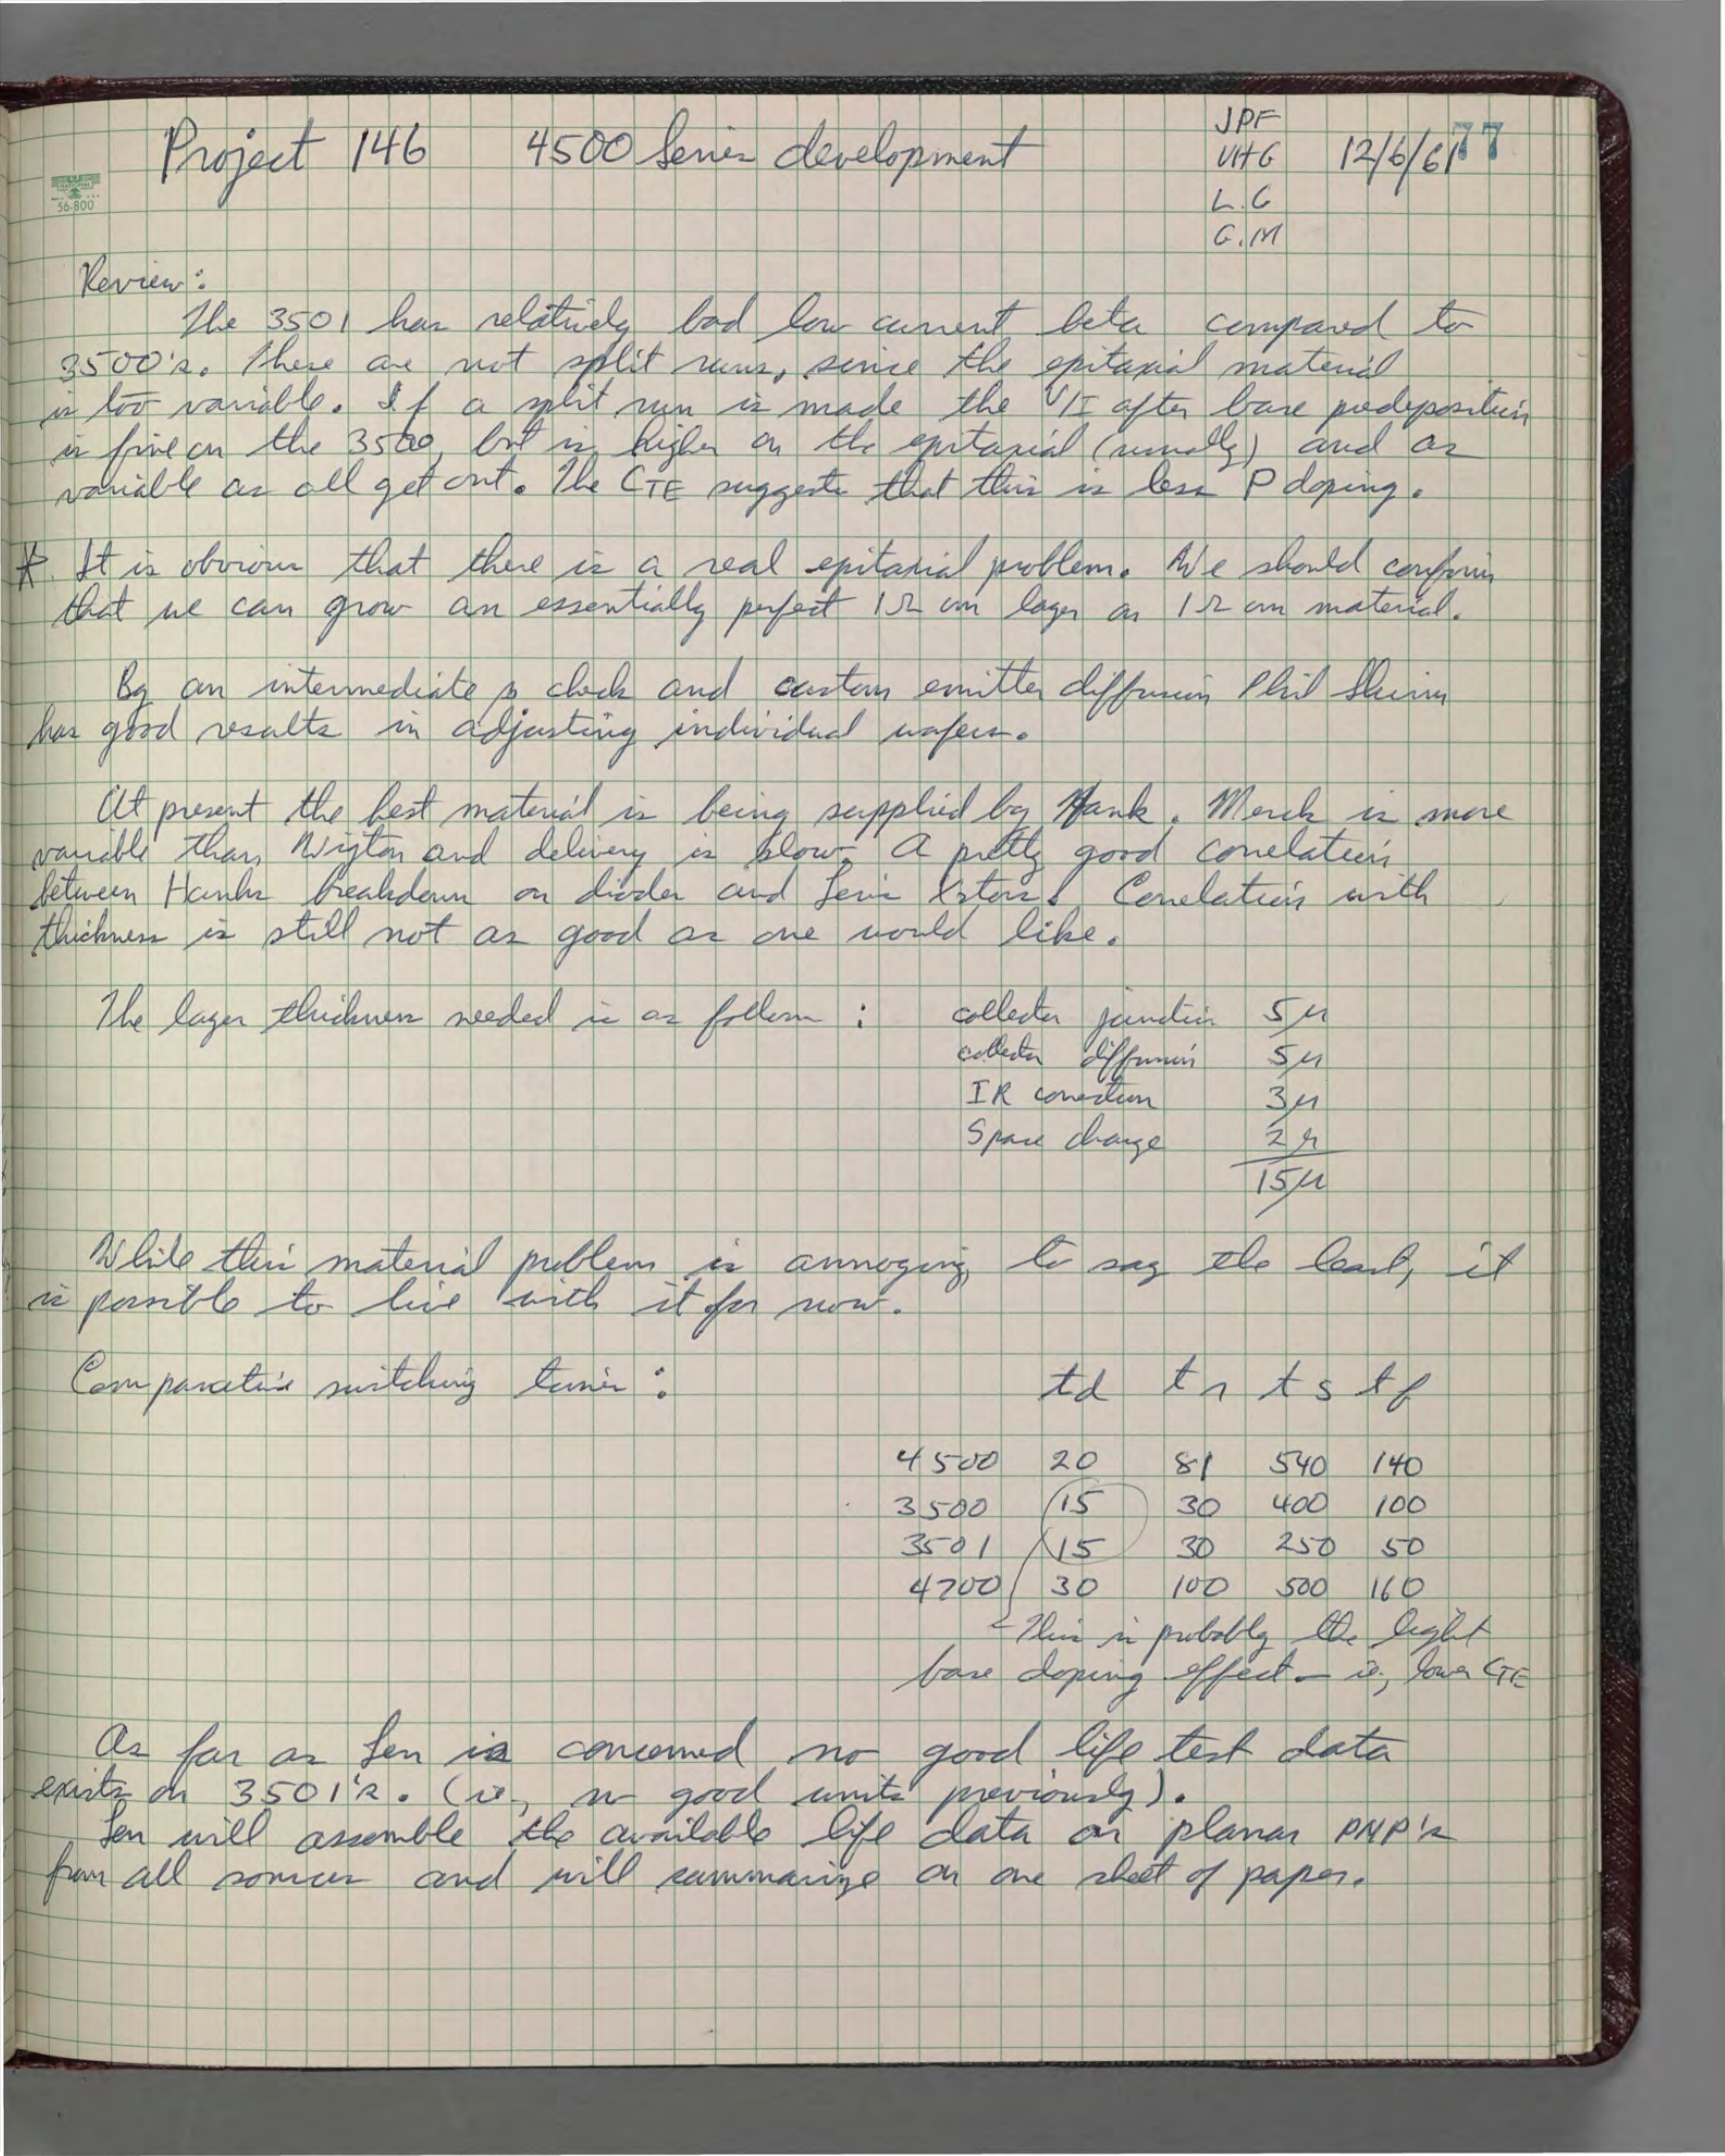 Project 146 4500 Series development
JPF
VHG
L.G
G.M
12/6/61
77
56-800
Review:
The 3501 has relatively bad low current beta compared to
3500's. These are not split runs, since the epitaxial material
is too variable. If a split run is made the V/I after base predeposition
is fine on the 3500, but is higher on the epitaxial (usually) and as
variable as all get out. The CTE suggests that this is less P doping.
* It is obvious that there is a real epitaxial problem. We should confirm
that we can grow an essentially perfect 1Ω cm layer on 1Ω cm material.
By an intermediate β check and custom emitter diffusion Phil
has good results in adjusting individual wafers.
At present the best material is being supplied by Hank. Merck is more
variable than Wigton and delivery is slow. A pretty good correlation
between Hanks breakdown on diodes and Len's Xstors. Correlation with
thickness is still not as good as one would like.
The layer thickness needed is as follows :
collector junction 5μ
collector diffusion 5μ
IR correction 3μ
Space charge 2μ
15μ
While this material problem is annoying, to say the least, it
is possible to live with it for now.
Comparative switching times :
td tr ts tf
4500 20 81 540 140
3500 15 30 400 100
3501 15 30 250 50
4700 30 100 500 160
This is probably the light
base doping effect - ie, lower CTE
As far as Len is concerned no good life test data
exists on 3501's. (ie, no good units previously).
Len will assemble the available life data on planar PNP's
from all sources and will summarize on one sheet of paper.